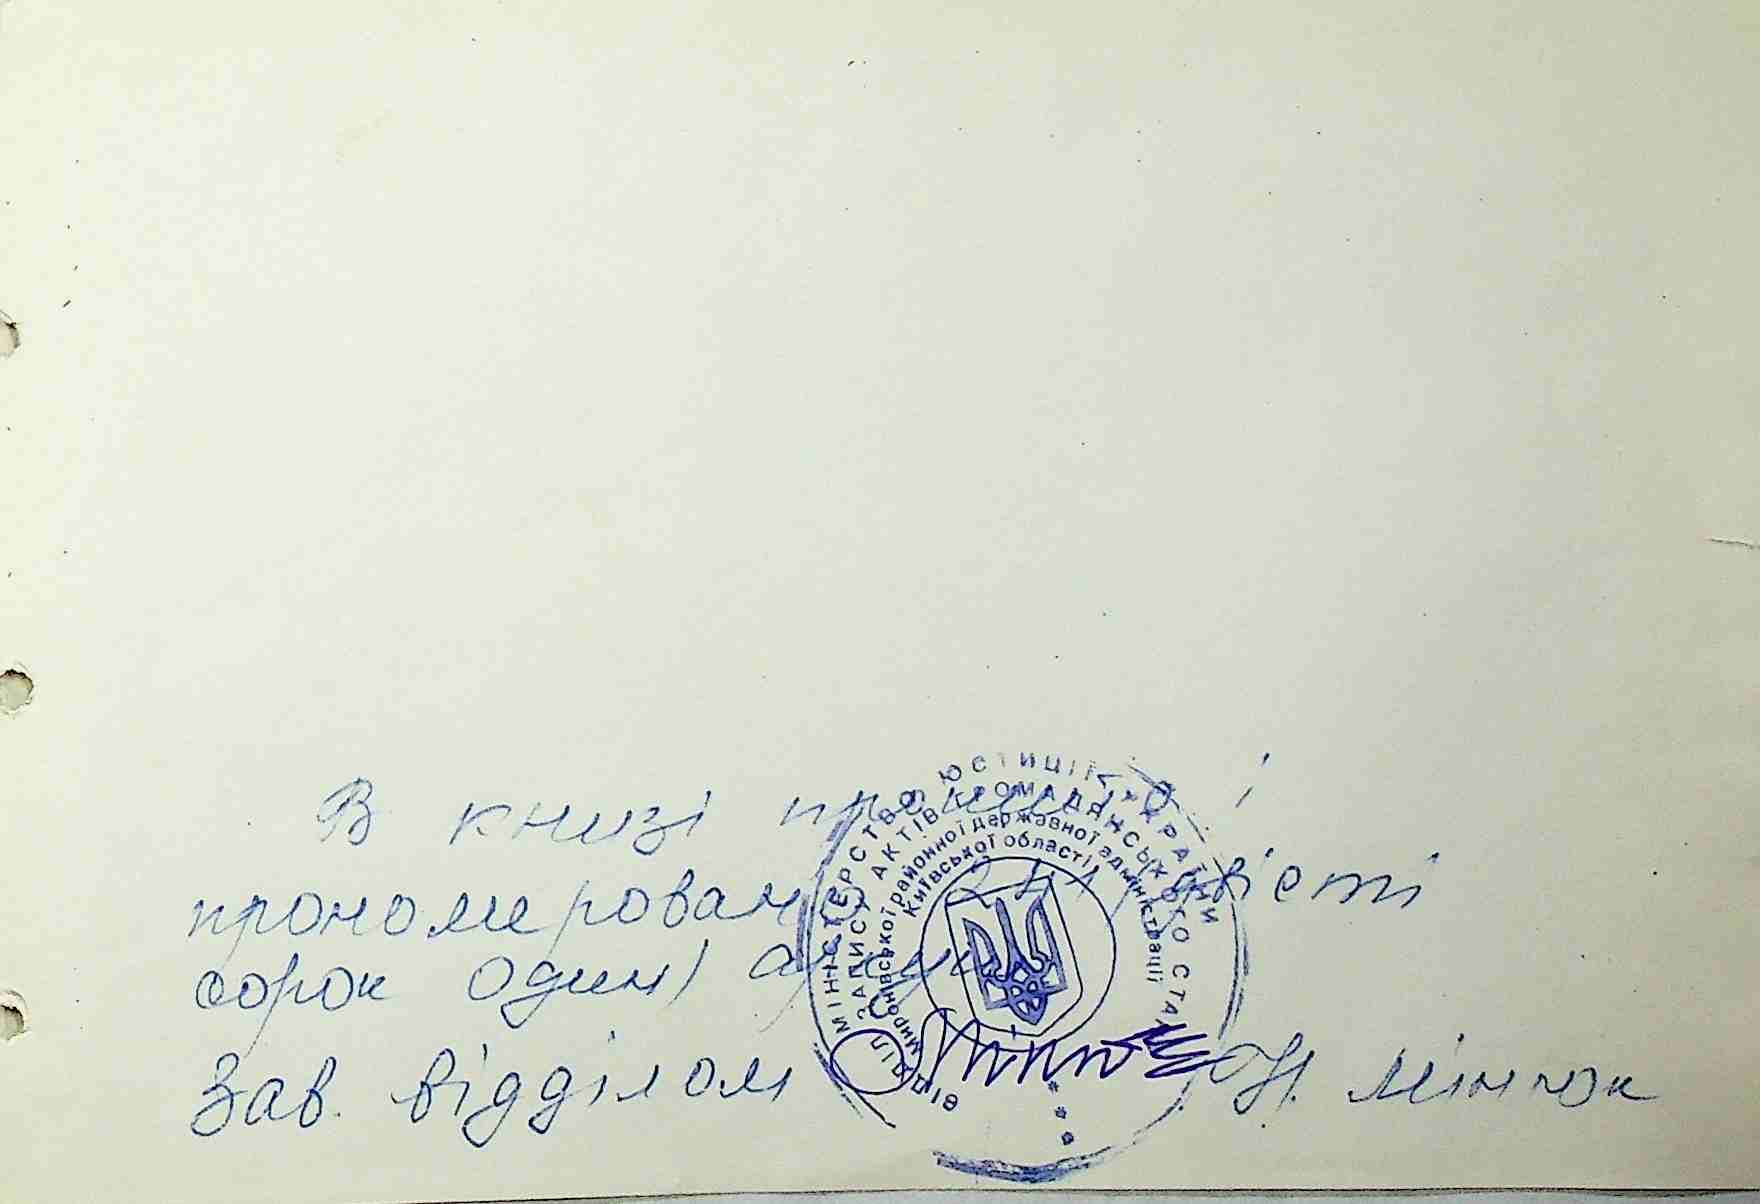 В книзі прошито і
прономеровано 241 (двісті
сорок один) аркуш
Зав. відділом Н. Мінток
МІНІСТЕРСТВО ЮСТИЦІЇ УКРАЇНИ
ВІДДІЛ ЗАПИСУ АКТІВ ГРОМАДЯНСЬКОГО СТАНУ
Миронівської районної державної адміністрації
Київської області